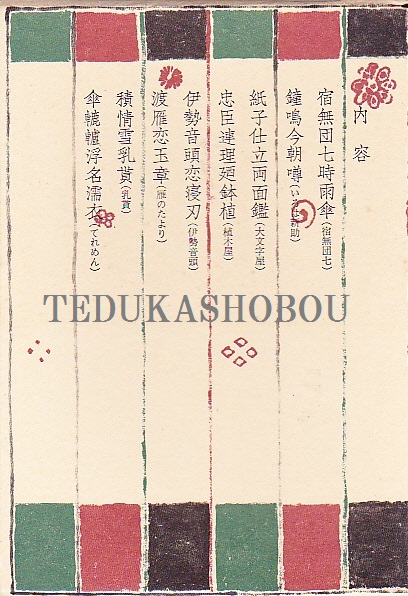 内容
宿無団七時雨傘(宿無団七)
鐘鳴今朝噂(いろは新助)
紙子仕立両面鑑(大文字屋)
忠臣連理廼鉢植(植木屋)
伊勢音頭恋寝刃(伊勢音頭)
渡雁恋玉章(雁のたより)
積情雪乳貰(乳貰)
傘轆轤浮名濡衣(てれめん)
TEDUKASHOBOU